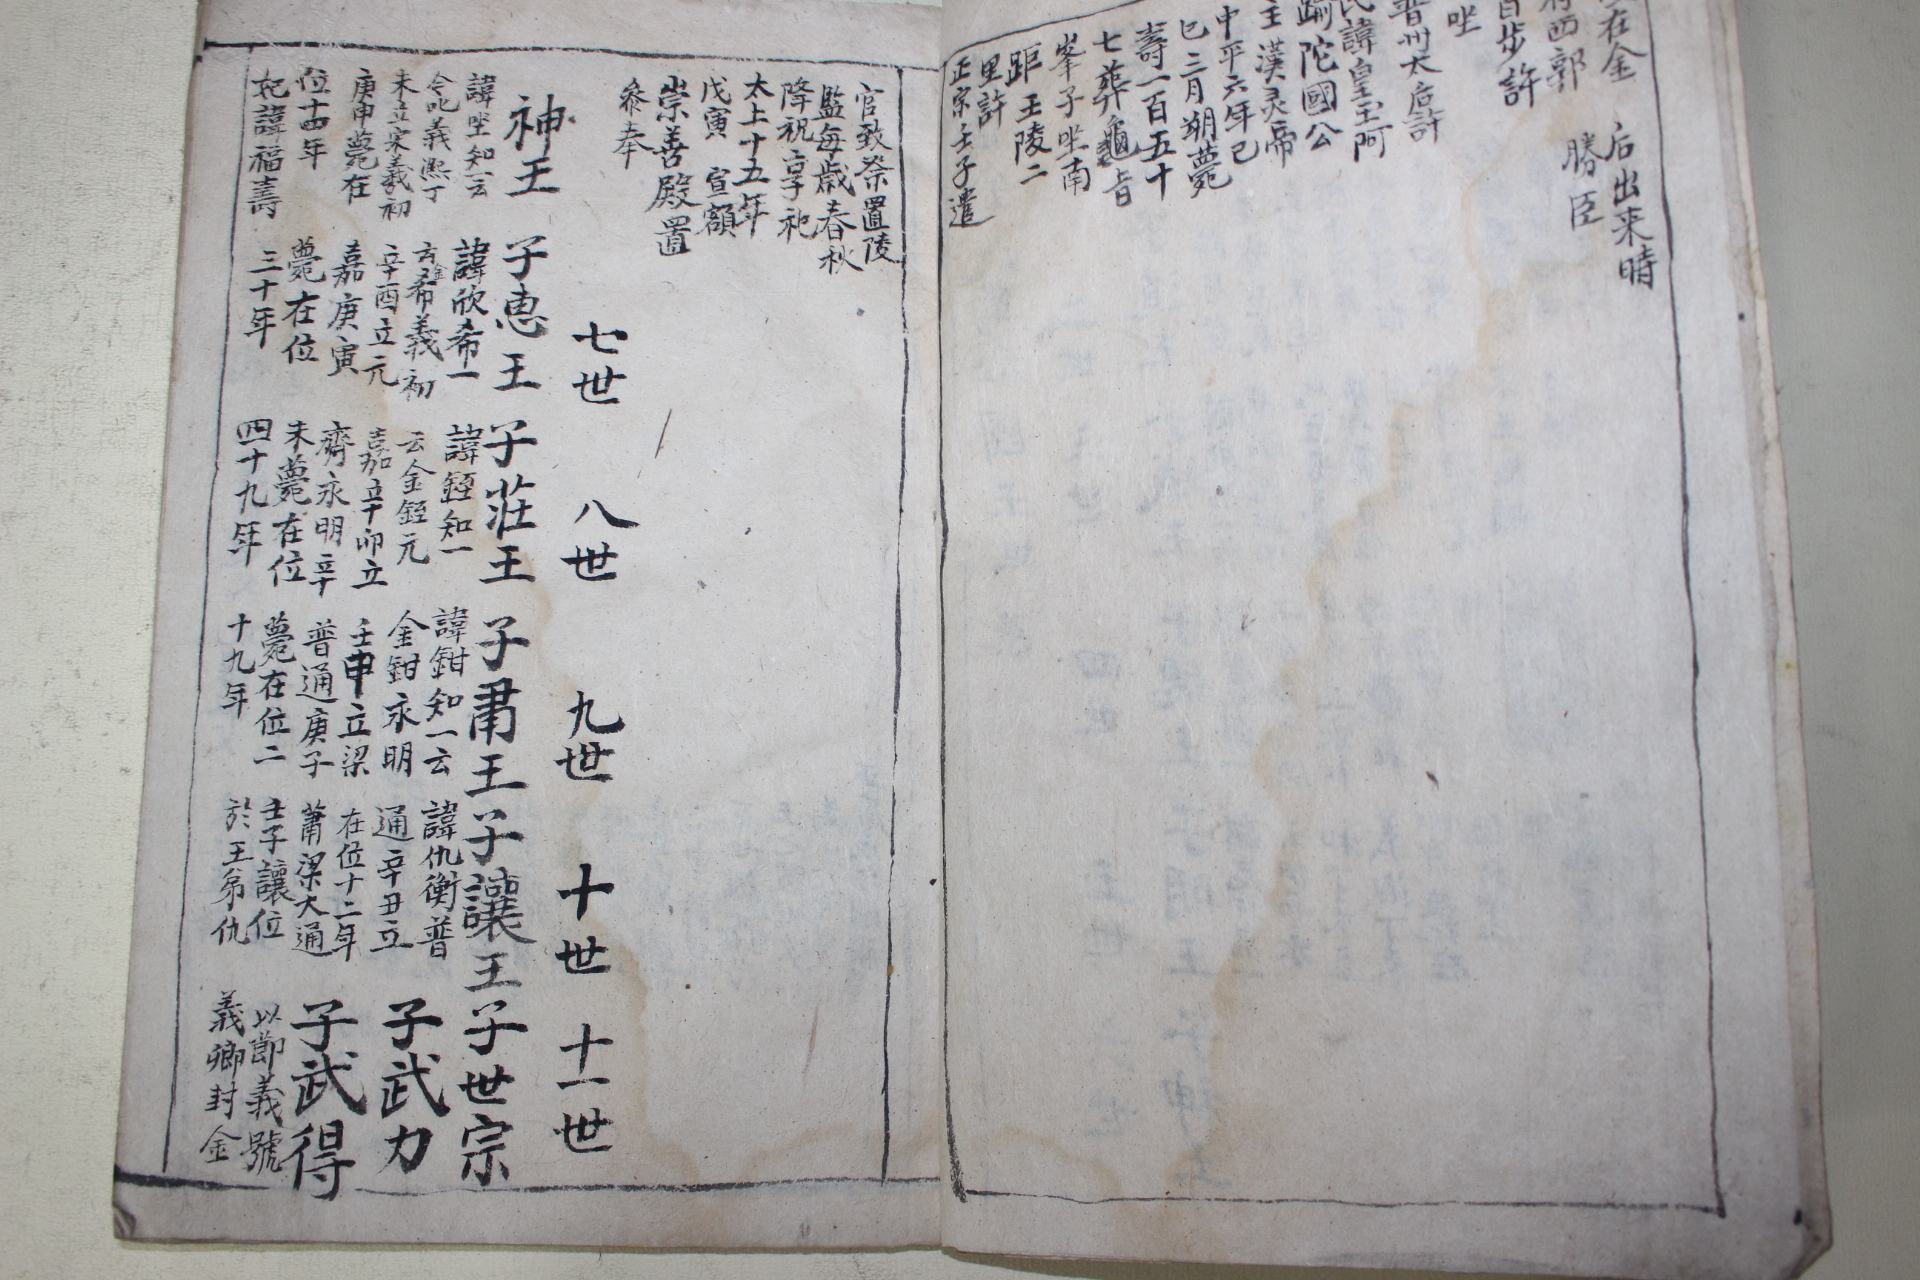 在金
府西郭
百步許
坐
后出来時
勝臣
普州太后許
氏諱皇玉阿
踰陀國公
主漢灵帝
中平六年己
巳三月朔薨
壽一百五十
七葬龜旨
峯子坐南
距王陵二
里許
正宗壬子遣
官致祭置陵
監每歲春秋
降祝享祀
太上十五年
戊寅宣額
崇善殿置
叅奉
七世
八世
九世
十世
十一世
神王
諱坐知一云
令叱義熙丁
未立宋義初
庚申薨在
位十四年
妃諱福壽
子惠王
諱欣希一
云金希義初
辛酉立元
嘉庚寅
薨在位
三十年
子莊王
諱銍知一
云金銍元
嘉辛卯立
齊永明辛
未薨在位
四十九年
子肅王
諱鉗知一云
金鉗永明
壬申立梁
普通庚子
薨在位二
十九年
子讓王
諱仇衡普
通辛丑立
在位十二年
蕭梁大通
壬子讓位
於王弟仇
子世宗
子武力
子武得
以節義號
義卿封金